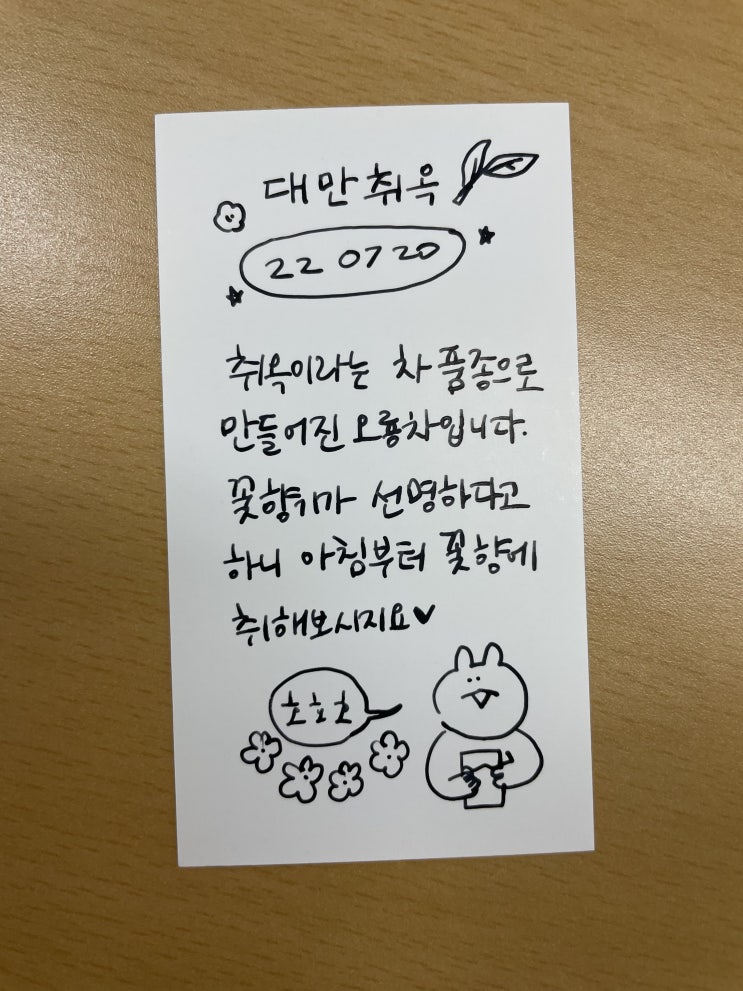 대만취옥
22 07 20
취옥이라는 차 품종으로
만들어진 오룡차입니다.
꽃향기가 선명하다고
하니 아침부터 꽃향에
취해보시지요♥
호호호